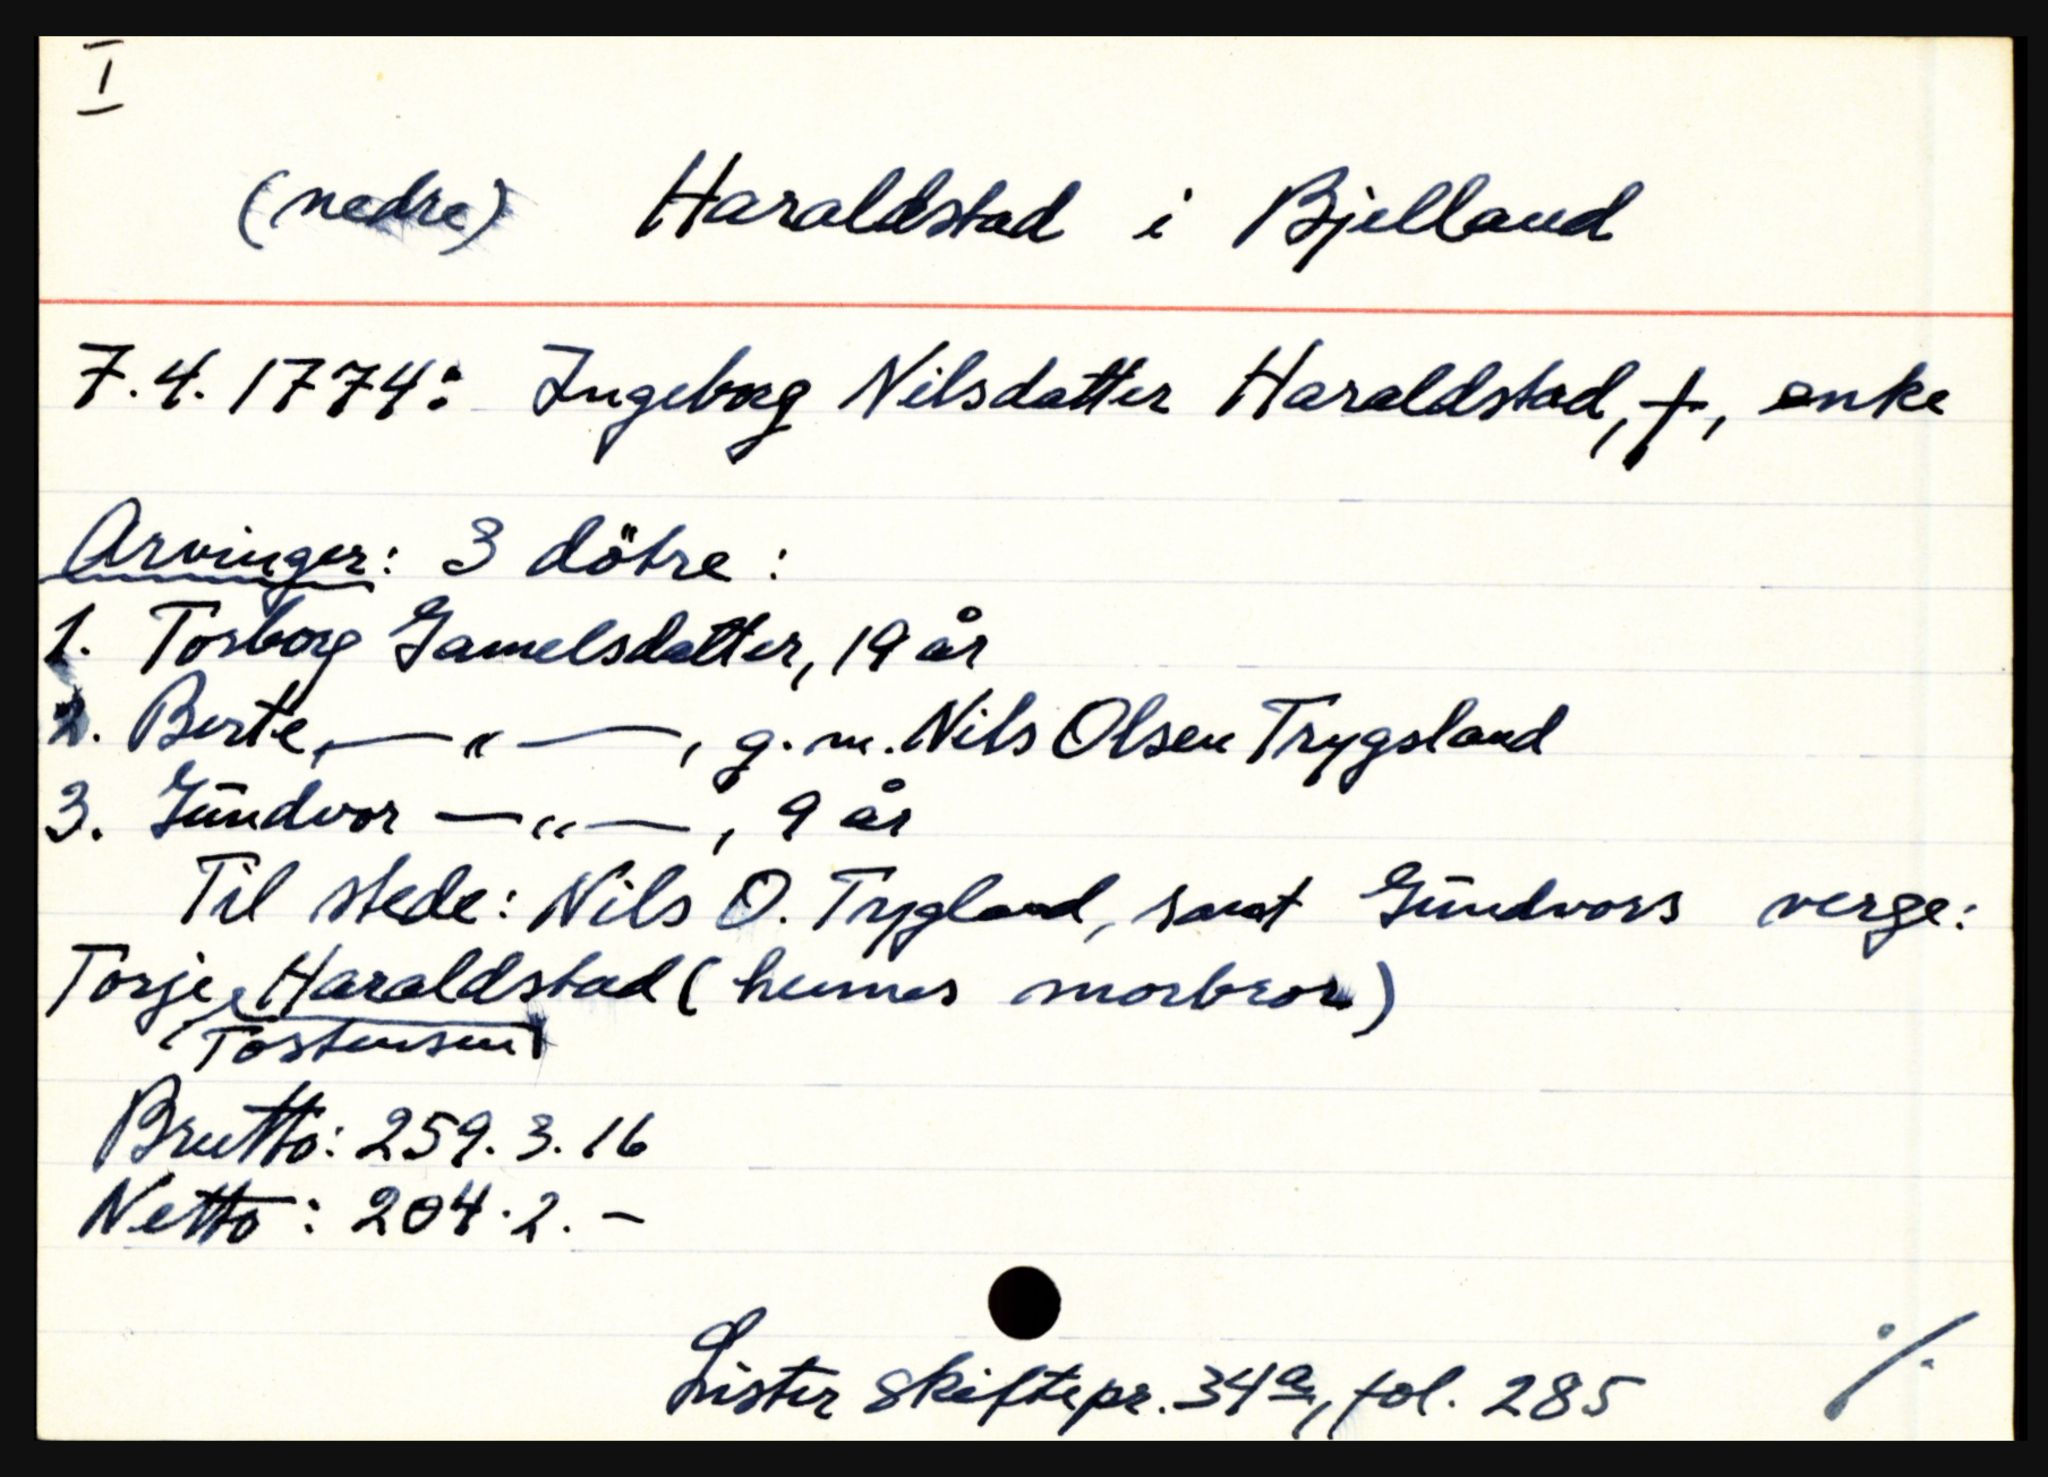 I
(nedre) Haraldstad i Bjelland
7.4.1774: Ingeborg Nilsdatter Haraldstad, †, enke
Arvinger: 3 dötre:
1. Torborg Gamelsdatter, 19 år
2. Berte, —„—, g.m. Nils Olsen Trygsland
3. Gūndvor —„—, 9 år
Til stede: Nils O. Trygland, samt Gūndvors verge:
Torje Haraldstad (hennes morbror)
Tostensen
Brutto: 259.3.16
Netto: 204.2.–
Lister skiftepr. 34a, fol. 285
⁒